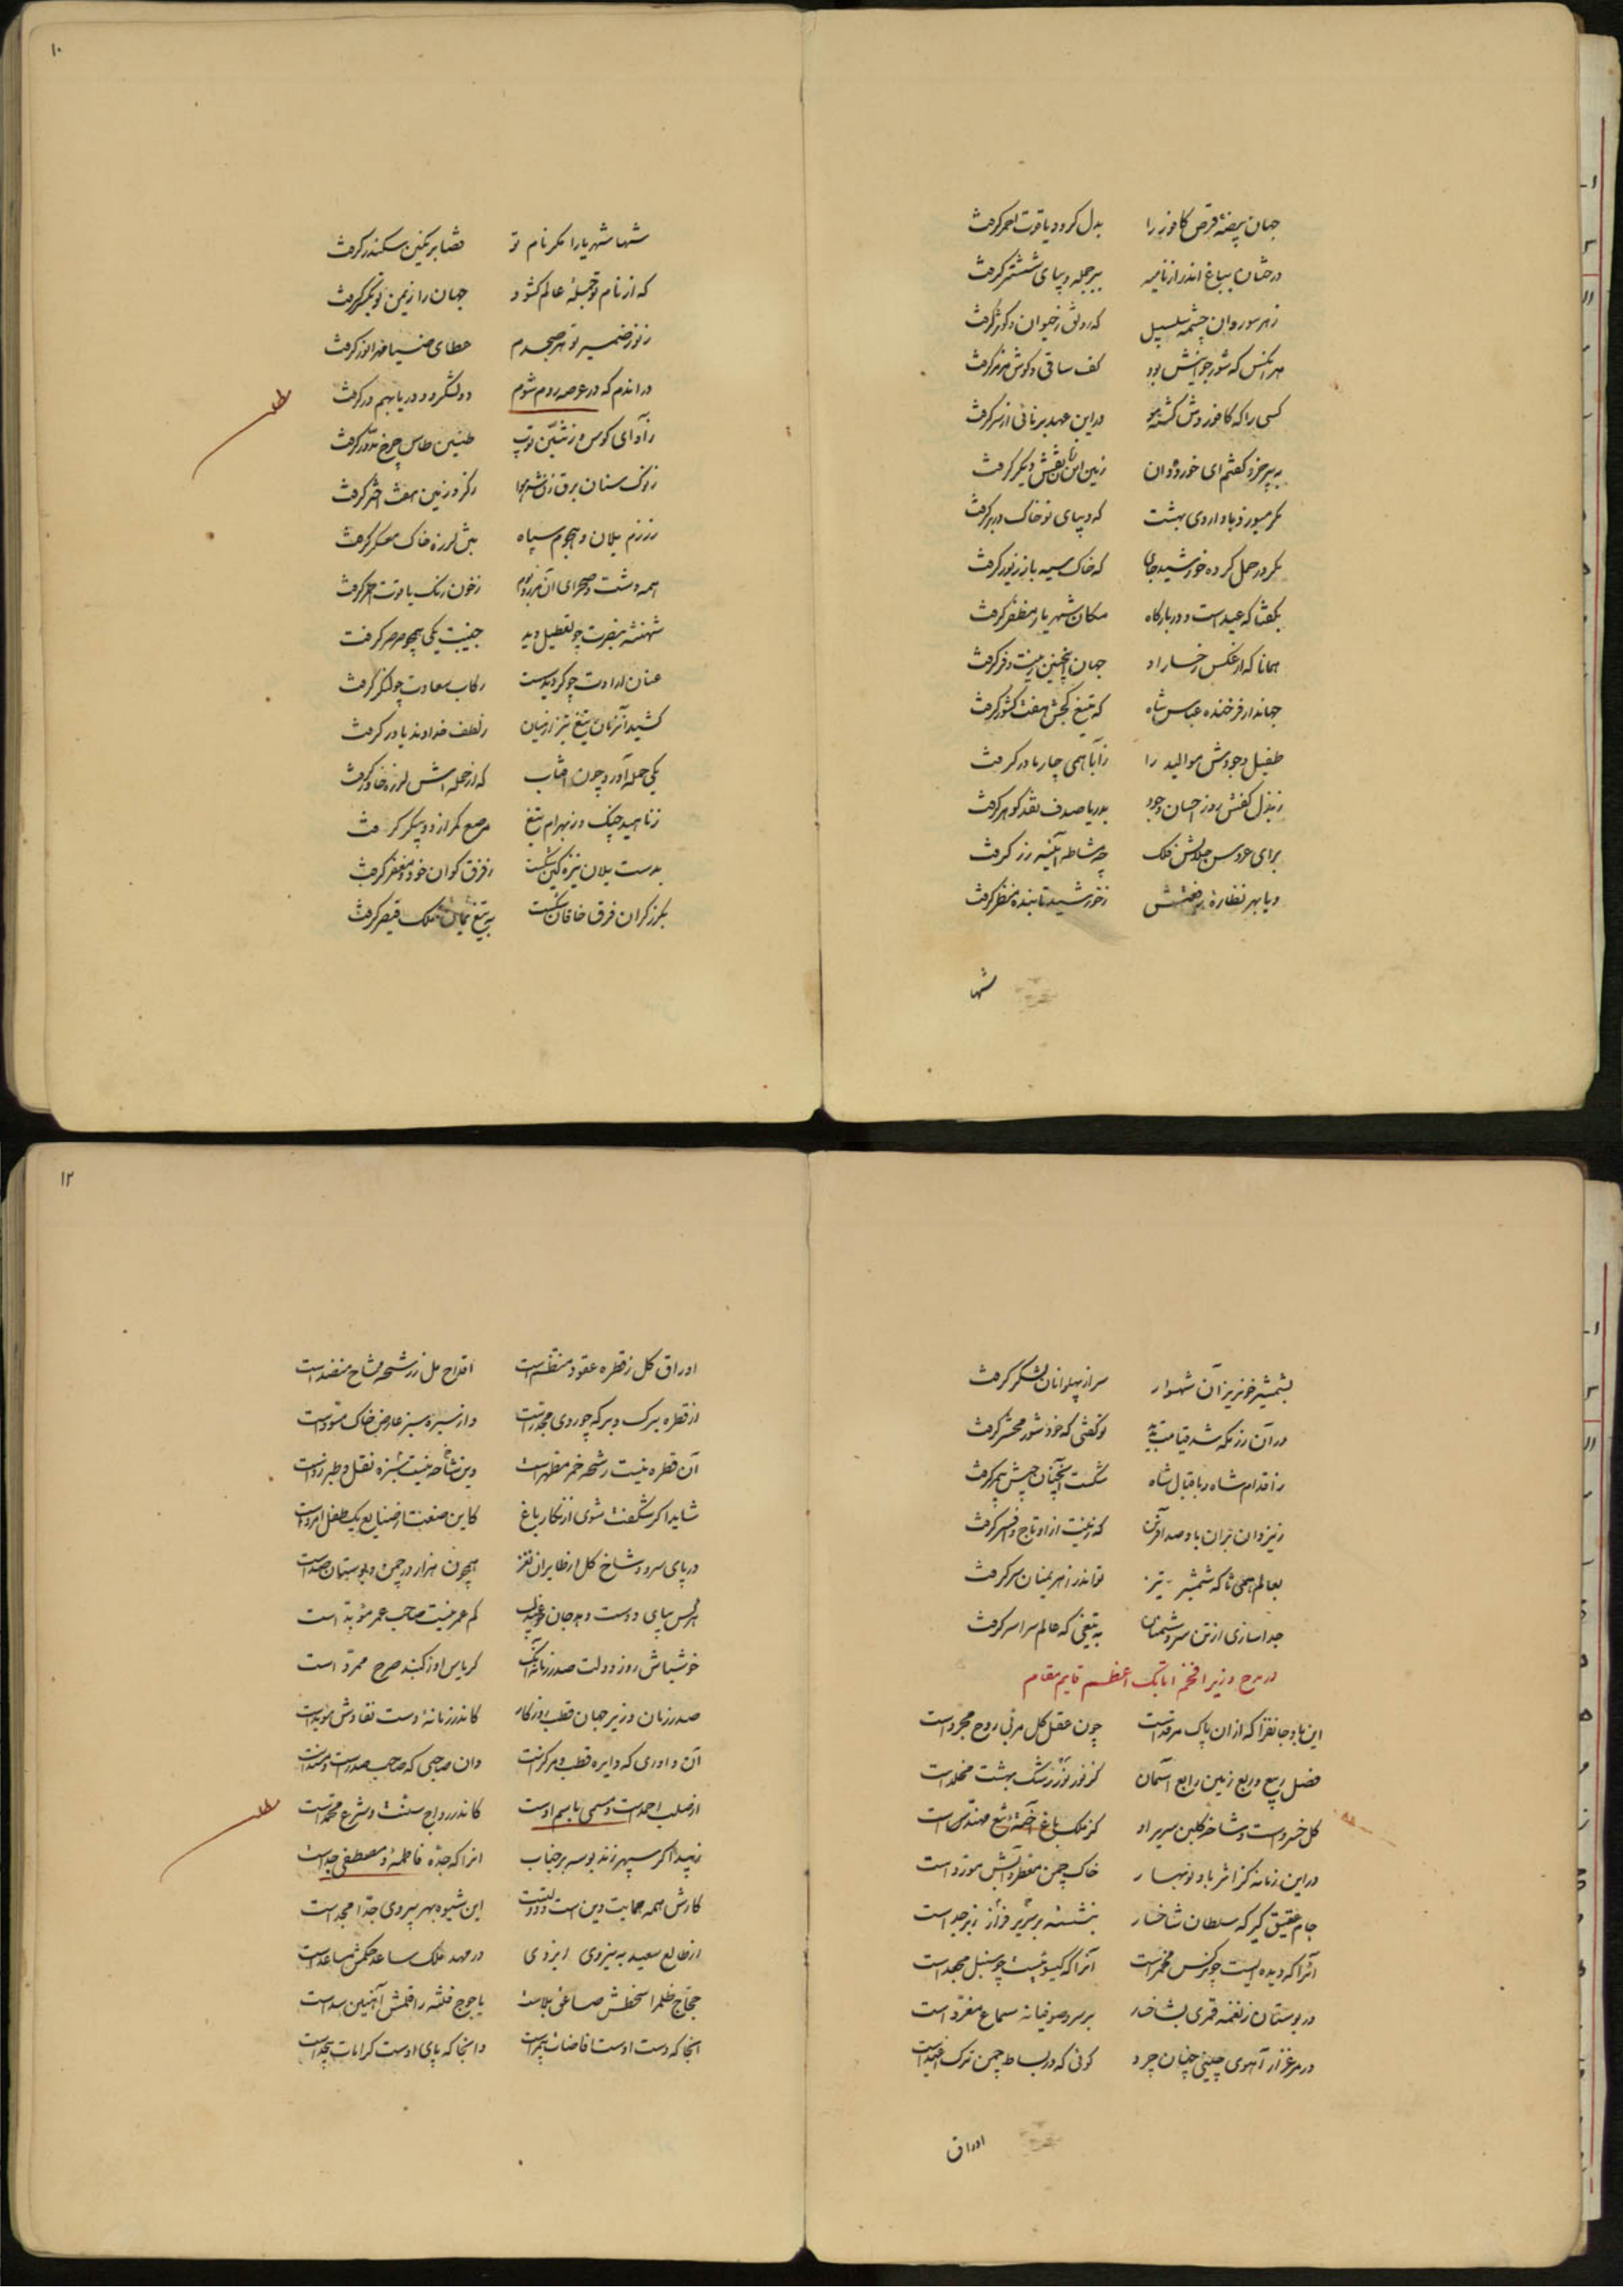 جهان بیضهٔ قرص کافور را بدل کرد و یاقوت احمر گرفت
درختان بباغ اندر از نامیه ببر جمله دیبای ششتر گرفت
ز هر سو روان چشمه سلسبیل که رونق ز حیوان و کوثر گرفت
هر آنکس که شور جوانیش بود کف ساقی و گوش مزمر گرفت
کسی را که کافور وش گشته مو در این عهد برنائی از سر گرفت
به پیر خرد گفتم ای خورده دان زمین این نقش دیگر گرفت
مگر میوزد باد اردی بهشت که دیبای نو خاک در بر گرفت
مگر در حمل کرده خورشید جای که خاک سیه باز زیور گرفت
بگفتا که عید است و در بارگاه مکان شهریار مظفر گرفت
همانا که از عکس رخسار او جهان اینچنین زینت و فر گرفت
جهاندار فرخنده عباس شاه که تیغ کجش هفت کشور گرفت
طفیل وجودش موالید را ز آبا همی چار مادر گرفت
ز بذل کفش روز احسان وجود بدریا صدف نقد گوهر گرفت
برای عروس جلالش فلک چه مشاطه آئینه زر گرفت
و یا بهر نظارهٔ رفعتش ز خورشید تابنده منظر گرفت
شها
۱۰
شها شهریارا مگر نام تو قضا بر نگین سکندر گرفت
که از نام تو جمله عالم گشود جهان را ز یمن تو یکسر گرفت
ز نور ضمیر تو هر صبحدم عطای ضیا مهر انور گرفت
در اندم که در عرصه روم شوم دو لشگر دو دریا بهم در گرفت
ز آوای کوس و ز تنین توپ طنین طاس چرخ مدور گرفت
ز نوک سنان برق زن شد هوا ز گرد زمین هفت اختر گرفت
ز رزم یلان و هجوم سپاه تن لرزه خاک معسکر گرفت
همه دشت و صحرای آن مرز و بوم ز خون رنگ یاقوت احمر گرفت
شهنشه بنصرت چو تعطیل دید جنیبت یکی همچو صرصر گرفت
عنان ارادت چو گردید سست رکاب سعادت چو لنگر گرفت
کشید آنزمان تیغ تیز از میان ز لطف خداوند یاور گرفت
یکی حمله آورد چون آفتاب که از حمله اش لرزه خاور گرفت
ز ناهید چنگ و ز بهرام تیغ مرصع کمر از دو پیکر گرفت
بدست یلان نیزه کین شکست ز فرق گوان خود و مغفر گرفت
بگرز گران فرق خاقان شکست به تیغ یمان ملک قیصر گرفت
بشمشیر خونریز آن شهسوار سر از پهلوانان لشگر گرفت
در آن رزمگه شد قیامت پدید تو گفتی که خود شور محشر گرفت
ز اقدام شاه و باقبال شاه شکست آنچنان جیش بهم بر گرفت
ز یزدان بر آن باد صد آفرین که زینت از او تاج و افسر گرفت
بعالم همی تا که شمشیر تیز تواند ز اهریمنان سر گرفت
جدا سازی از تن سر دشمنان به تیغی که عالم سراسر گرفت
در مدح وزیر افخم اتابک اعظم قایم مقام
این باد جانفزا که از ان پاک مرقد است چون عقل کل مربی روح مجرد است
فصل ربیع و ربع زمین رابع آسمان کز نور نور رشک بهشت مخلد است
گل خسرو است و شاخ گلبن سریر او کز ملک باغ مهندس است
در این زمانه کز اثر باد نوبهار خاک چمن آبش مورد است
جام عقیق گیر که سلطان شاخسار بنشسته بر سریر فراز زبرجد است
آنرا که دیده ایست چو نرگس مخمر است آنرا که گیسوئیست چو سنبل مجعد است
در بوستان ز نغمه قمری بشاخسار بر سرو صوفیانه سماع مغرد است
در مرغزار آهوی چینی چنان چرد گوئی که در بساط چمن ترک اغید است
اوراق
۱۲
اوراق گل ز قطره عقود منظم است اقداح مل ز رشحه مشاح منضد است
از قطره برگ و بر که چو روی مجدر است و از سبزه سبز عارض خاک مسود است
آن قطره نیست رشحه خمر مطهر است
شاید اگر شگفت شوی از نگار باغ کاین صنعت از صنایع یک طفل امرد است
در پای سرو و شاخ گل از طایران نغز همچون هزار در چمن و بوستان صد است
هر کس بپای دوست دهد جان کم عمر نیست صاحب عمر مؤبد است
خوشباش روز دولت صدر زمانه کریاس او ز گنبد صرح ممرد است
صدر زمان وزیر جهان قطب روزگار کاندر زمانه دست نفاذش مؤید است
آن داوری که دایره قطب و مرکز است وان صاحبی که صاحب صدر است و مسند است
از صلب احمد است و مسمی باسم اوست کاندر رواج سنت و شرع محمد است
زیبد اگر سپهر زند بوسه بر جناب انرا که جده فاطمه و مصطفی جد است
کارش همه حمایت دین است و دولت است این شیوه بهر پیروی جد امجد است
از طالع سعید به نیروی ایزدی در مهد ملک ساعد حکمش مساعد است
حجاج ظلم را سخطش صاعق بلاست یاجوج فتنه را قلمش آهنین سد است
انجا که دست اوست و انجا که پای اوست کرامات بیحد است